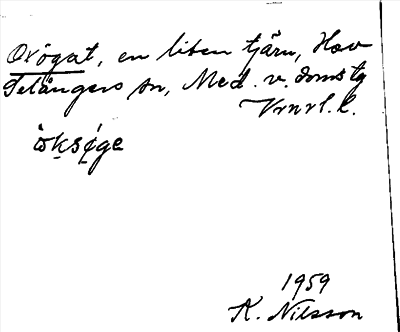 Oxögat, en liten tjärn, Hov
Selångers sn, Med. v. doms tg
Vrnrl. l.
ò̱ksǫ́ge
1959
K. Nilsson